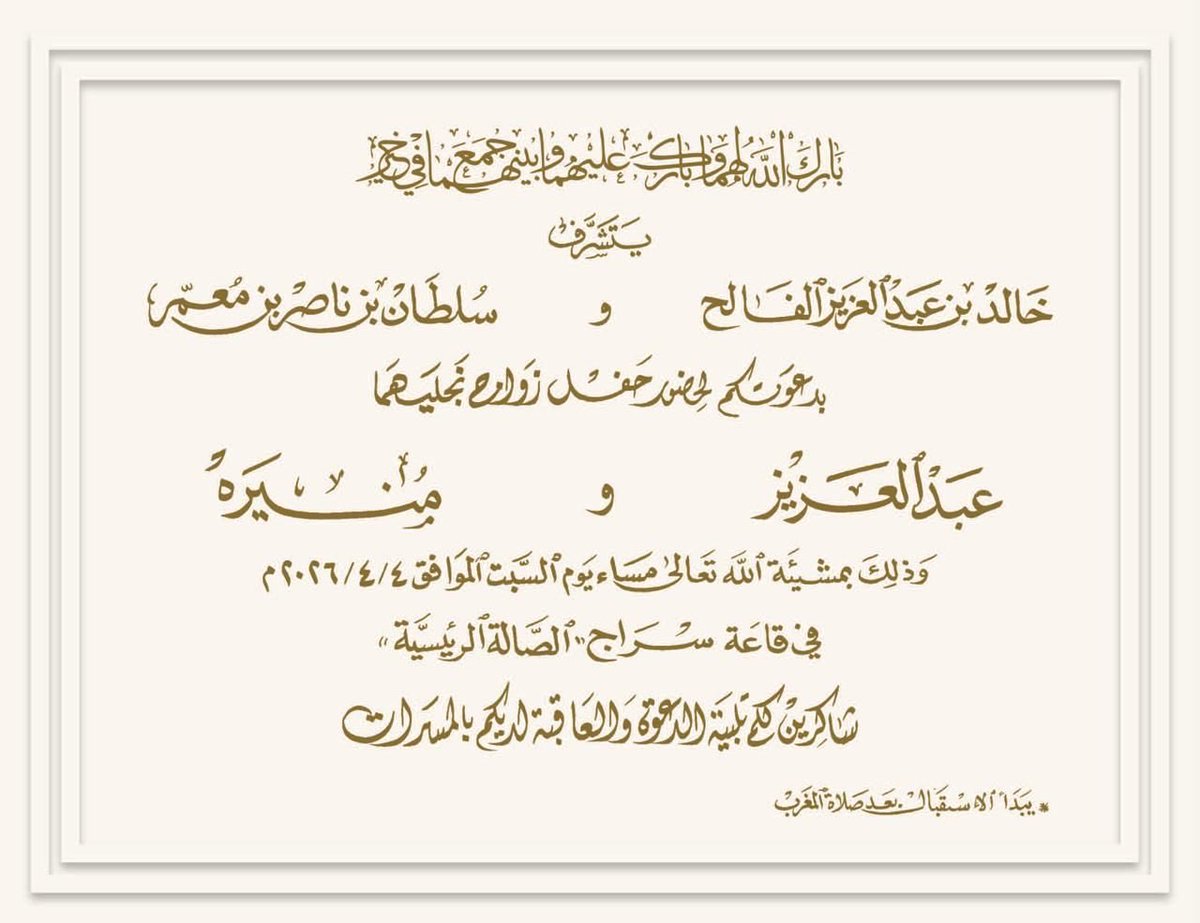 بَارَكَ اللَّهُ لهما وَبَارَكَ عليهما وجَمَعَ بينهما في خير
يَتَشَرَّف
خَالد بن عَبدْ العزيز الفَالح و سُلطَان بن ناصر بن مُعمّر
بدعوَتكم لحضور حَفل زوَاج نَجليهمَا
عبدْ العزيز و مُنيرَة
وَذلِكَ بمشيئَة الله تَعَالى مسَاء يَوم السَّبت الموَافق ٢٠٢٦/٤/٤م
في قاعَة سرَاج "الصَّالة الرئيسيَّة"
شاكرين لكم تلبية الدعوة وَالعاقبة لديكم بالمسرات
* يبدَأ الاستقبال بَعد صَلاة المغَرب